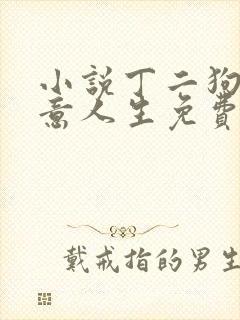 小説丁二狗
意人生免費
戴戒指的男生